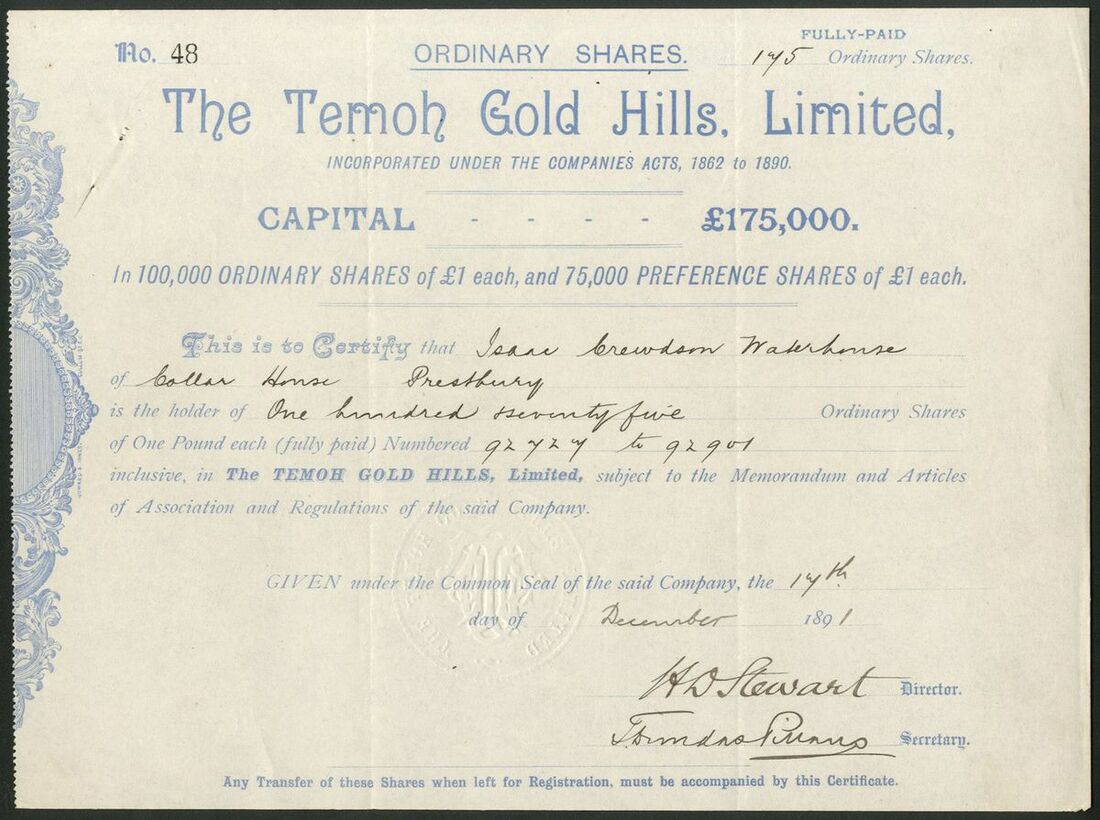 No. 48
ORDINARY SHARES.
FULLY-PAID
175 Ordinary Shares.
The Temoh Gold Hills, Limited,
INCORPORATED UNDER THE COMPANIES ACTS, 1862 to 1890.
CAPITAL - - - - £175,000.
In 100,000 ORDINARY SHARES of £1 each, and 75,000 PREFERENCE SHARES of £1 each.
This is to Certify that Isaac Crewdson Waterhouse
of Collar House Prestbury
is the holder of One hundred & seventy five Ordinary Shares
of One Pound each (fully paid) Numbered 92727 to 92901
inclusive, in The TEMOH GOLD HILLS, Limited, subject to the Memorandum and Articles
of Association and Regulations of the said Company.
GIVEN under the Common Seal of the said Company, the 17th
day of December 1891
H D Stewart Director.
Secretary.
Any Transfer of these Shares when left for Registration, must be accompanied by this Certificate.